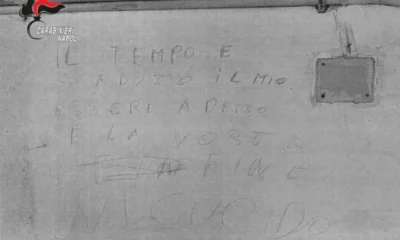 CARABINIERI
NAPOLI
IL TEMPO È
SCADUTO IL MIO
ESSERE ADESSO
E LA VOSTRA
FINE